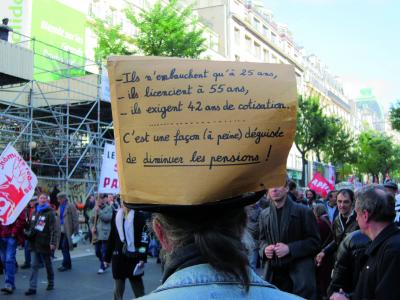 - Ils n'embauchent qu'à 25 ans,
- ils licencient à 55 ans,
- ils exigent 42 ans de cotisation.
....................
C'est une façon (à peine) déguisée
de diminuer les pensions !